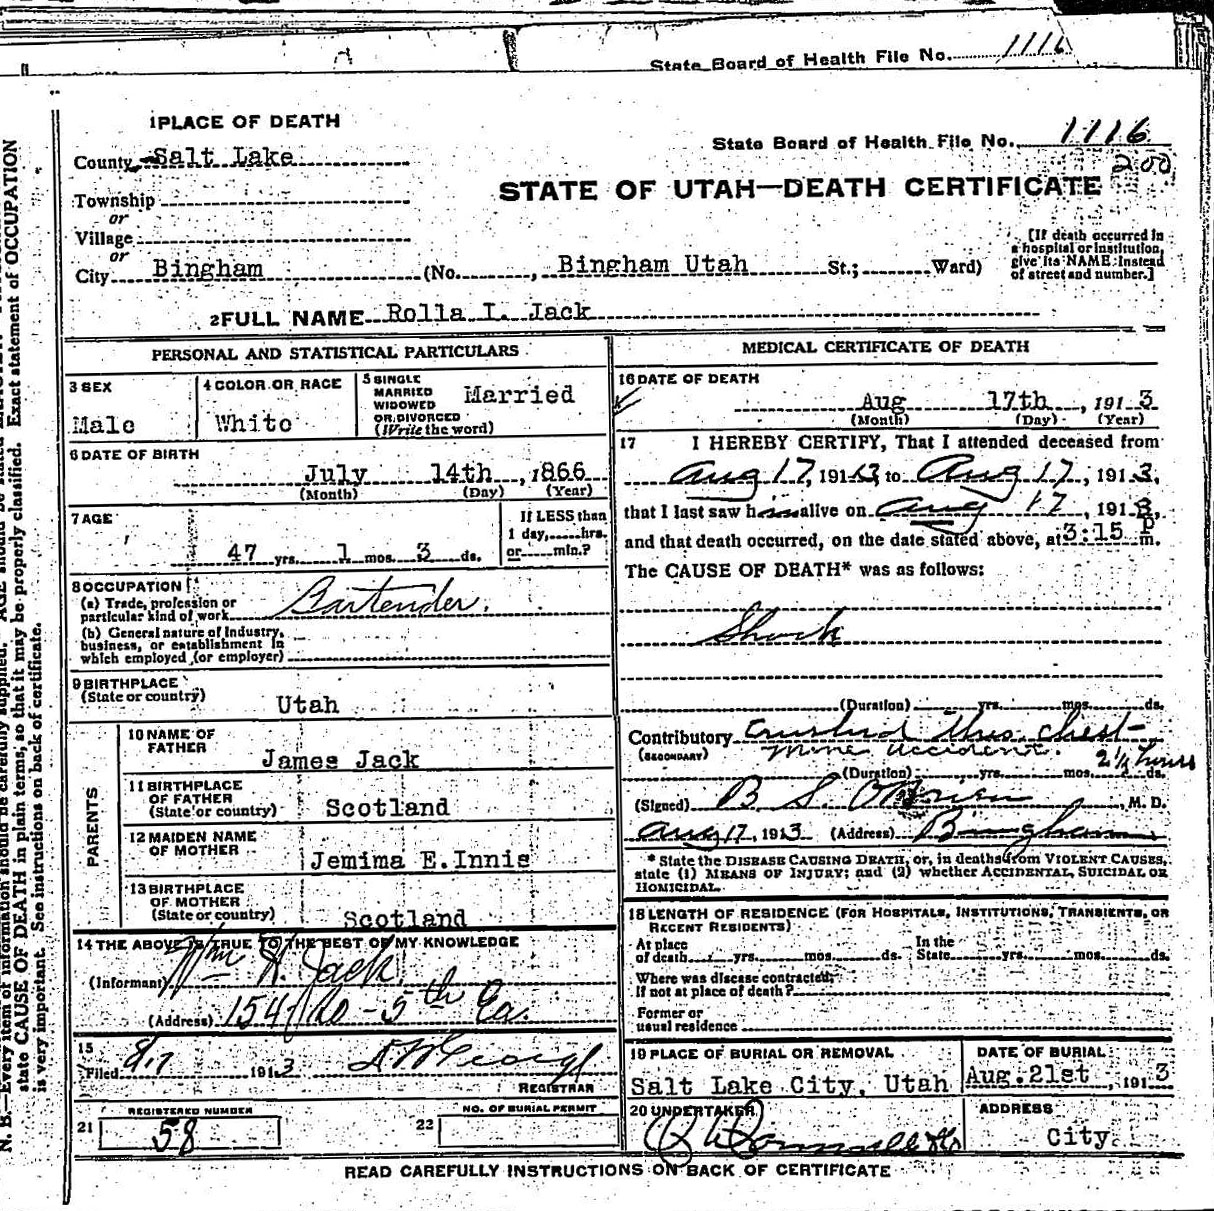 State Board of Health File No. 1116
1 PLACE OF DEATH
State Board of Health File No. 1116
200
County Salt Lake
STATE OF UTAH—DEATH CERTIFICATE
Township
or
Village
or
City Bingham (No. , Bingham Utah St.; Ward)
[If death occurred in
a hospital or institution,
give its NAME instead
of street and number.]
2 FULL NAME Rolla I. Jack
PERSONAL AND STATISTICAL PARTICULARS
3 SEX
Male
4 COLOR OR RACE
White
5 SINGLE
MARRIED
WIDOWED
OR DIVORCED
(Write the word)
Married
6 DATE OF BIRTH
July 14th , 1866
(Month) (Day) (Year)
7 AGE
47 yrs. 1 mos. 3 ds.
If LESS than
1 day, hrs.
or min.?
8 OCCUPATION
(a) Trade, profession or
particular kind of work Bartender.
(b) General nature of Industry,
business, or establishment in
which employed (or employer)
9 BIRTHPLACE
(State or country)
Utah
PARENTS
10 NAME OF
FATHER
James Jack
11 BIRTHPLACE
OF FATHER
(State or country)
Scotland
12 MAIDEN NAME
OF MOTHER
Jemima E.Innis
13 BIRTHPLACE
OF MOTHER
(State or country)
Scotland
14 THE ABOVE IS TRUE TO THE BEST OF MY KNOWLEDGE
(Informant) Wm H. Jack
(Address) 154 No - 5th Ea.
15
Filed 8/17 1913
REGISTRAR
REGISTERED NUMBER
21 58
NO. OF BURIAL PERMIT
22
MEDICAL CERTIFICATE OF DEATH
16 DATE OF DEATH
Aug 17th , 1913
(Month) (Day) (Year)
17 I HEREBY CERTIFY, That I attended deceased from
Aug 17, 1913, to Aug 17, 1913,
that I last saw him alive on Aug 17, 1913,
and that death occurred, on the date stated above, at 3:15 p m.
The CAUSE OF DEATH* was as follows:
Shock
(Duration) yrs. mos. ds.
Contributory Crushed thru chest
(SECONDARY) Mine accident.
2¼ hours
(Duration) yrs. mos. ds.
(Signed) B S. O'Brien , M. D.
Aug 17, 1913 (Address) Bingham
* State the DISEASE CAUSING DEATH, or, in deaths from VIOLENT CAUSES,
state (1) MEANS OF INJURY; and (2) whether ACCIDENTAL, SUICIDAL OR
HOMICIDAL.
18 LENGTH OF RESIDENCE (FOR HOSPITALS, INSTITUTIONS, TRANSIENTS, OR
RECENT RESIDENTS)
At place
of death yrs. mos. ds.
In the
State yrs. mos. ds.
Where was disease contracted,
If not at place of death?
Former or
usual residence
19 PLACE OF BURIAL OR REMOVAL
Salt Lake City, Utah
DATE OF BURIAL
Aug. 21st , 1913
20 UNDERTAKER
ADDRESS
City.
READ CAREFULLY INSTRUCTIONS ON BACK OF CERTIFICATE
N. B.—Every item of information should be carefully supplied. AGE should be
state CAUSE OF DEATH in plain terms, so that it may be properly classified. Exact statement of OCCUPATION
is very important. See instructions on back of certificate.